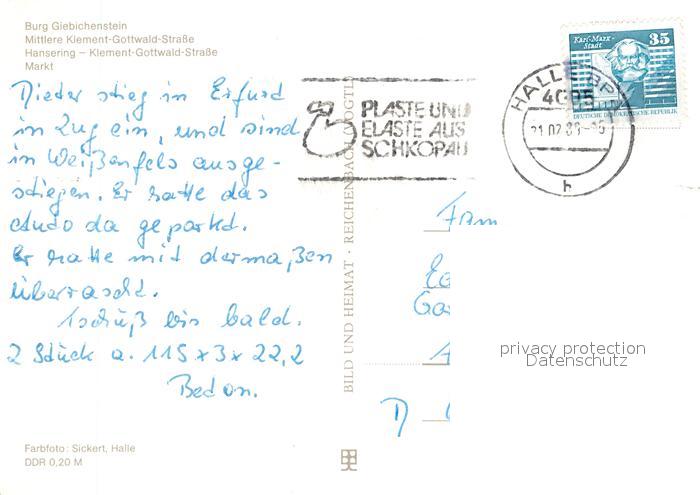 Burg Giebichenstein
Mittlere Klement-Gottwald-Straße
Hansering – Klement-Gottwald-Straße
Markt
Dieter stieg in Erfurt
in Zug ein, und sind
in Weißenfels ausge-
stiegen. Er hatte das
Auto da geparkt.
Er hatte mit dermaßen
überrascht.
Tschüß bis bald.
2 Stück a. 115 x 3 x 22,2
Farbfoto: Sickert, Halle
DDR 0,20 M
BILD UND HEIMAT · REICHENBACH (VOGTL)
PLASTE UND
ELASTE AUS
SCHKOPAU
HALLE BPA
4005
h
Karl-Marx-
Stadt
35
DEUTSCHE DEMOKRATISCHE REPUBLIK
D
privacy protection
Datenschutz